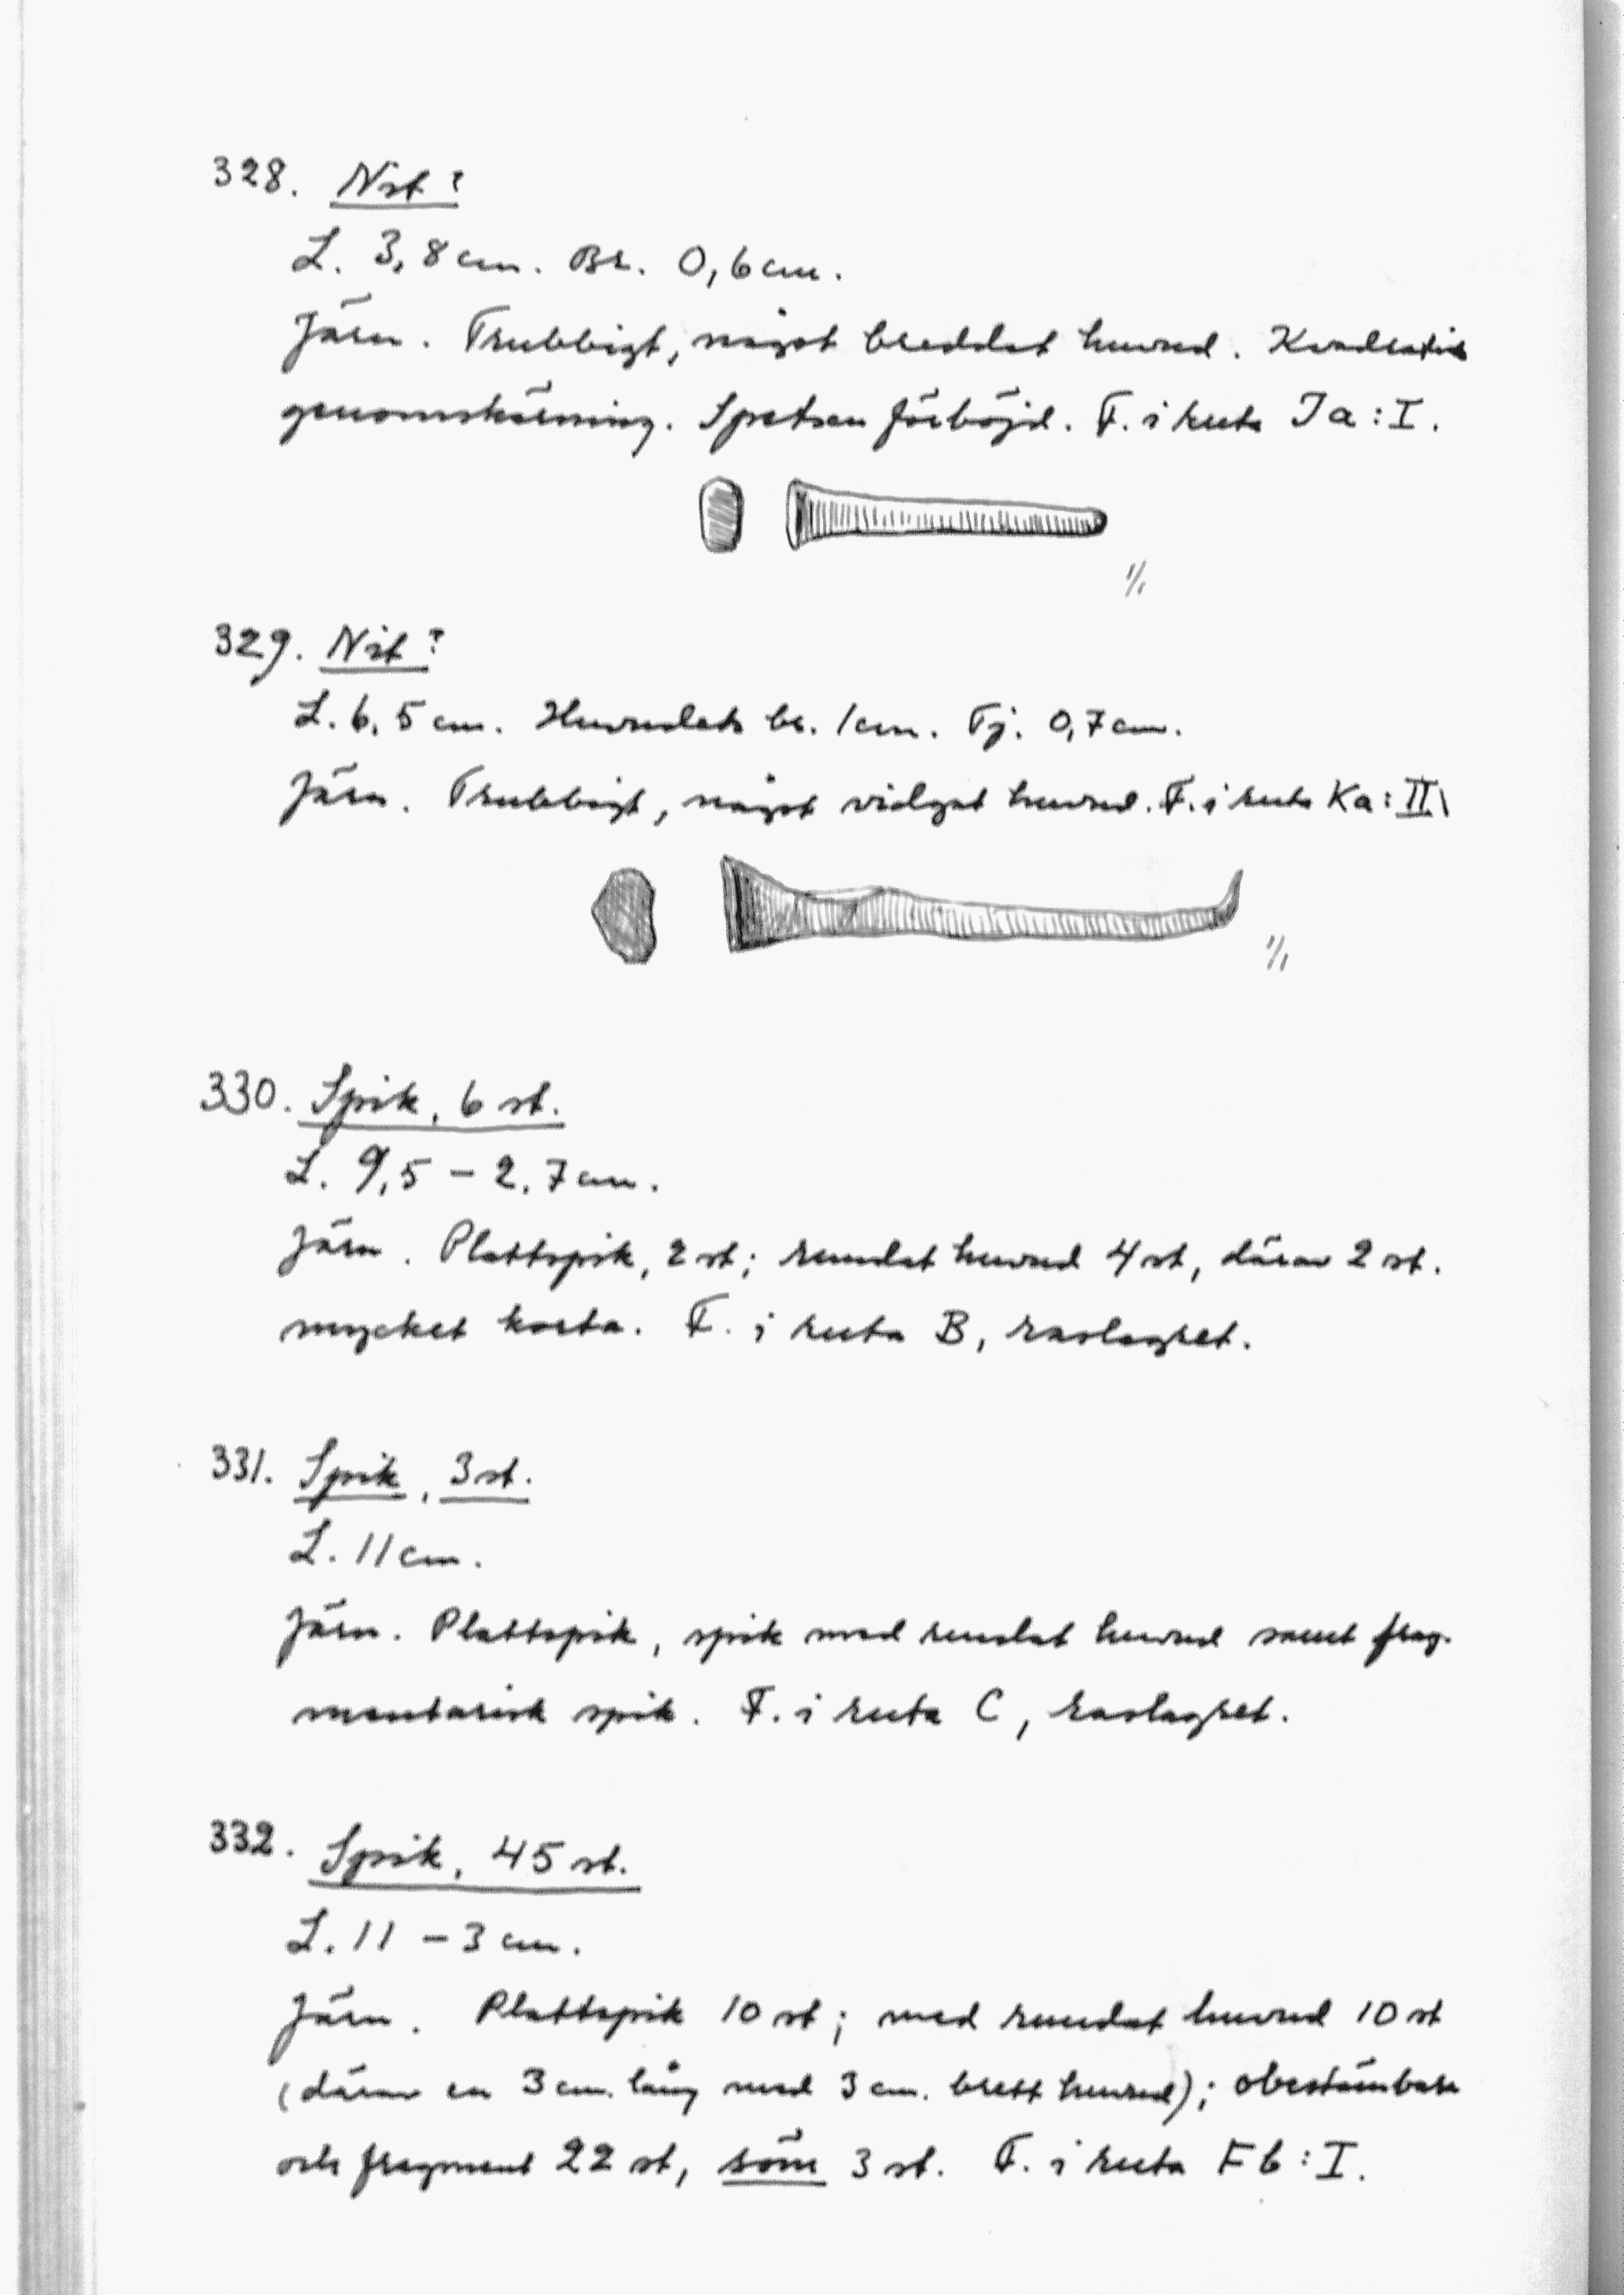 328. Nit?
L. 3,8 cm. Br. 0,6 cm.
Järn. Trubbigt, något breddat huvud. Kvadratisk
genomskärning. Spetsen förböjd. F. i ruta Ia:I.
1/1
329. Nit?
L. 6,5 cm. Huvudets br. 1 cm. Tj. 0,7 cm.
Järn. Trubbigt, något vidgat huvud. F. i ruta Ka:II
1/1
330. Spik, 6 st.
L. 9,5 – 2,7 cm.
Järn. Plattspik, 2 st; rundat huvud 4 st, därav 2 st.
mycket korta. F. i ruta B, raslagret.
331. Spik, 3 st.
L. 11 cm.
Järn. Plattspik, spik med rundat huvud samt frag-
mentarisk spik. F. i ruta C, raslagret.
332. Spik, 45 st.
L. 11 – 3 cm.
Järn. Plattspik 10 st; med rundat huvud 10 st
(därav en 3 cm. lång med 3 cm. brett huvud); obestämbara
och fragment 22 st, söm 3 st. F. i ruta Fb:I.